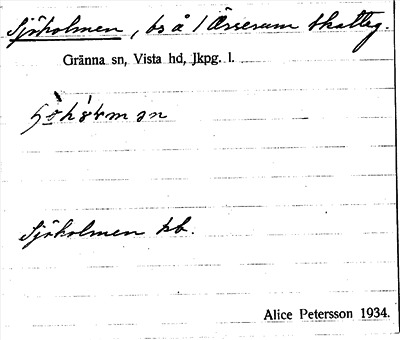 Sjöholmen, bs å 1 Össerum skattg.
Gränna sn, Vista hd, Jkpg. l.
Sjöholmen kb.
Alice Petersson 1934.